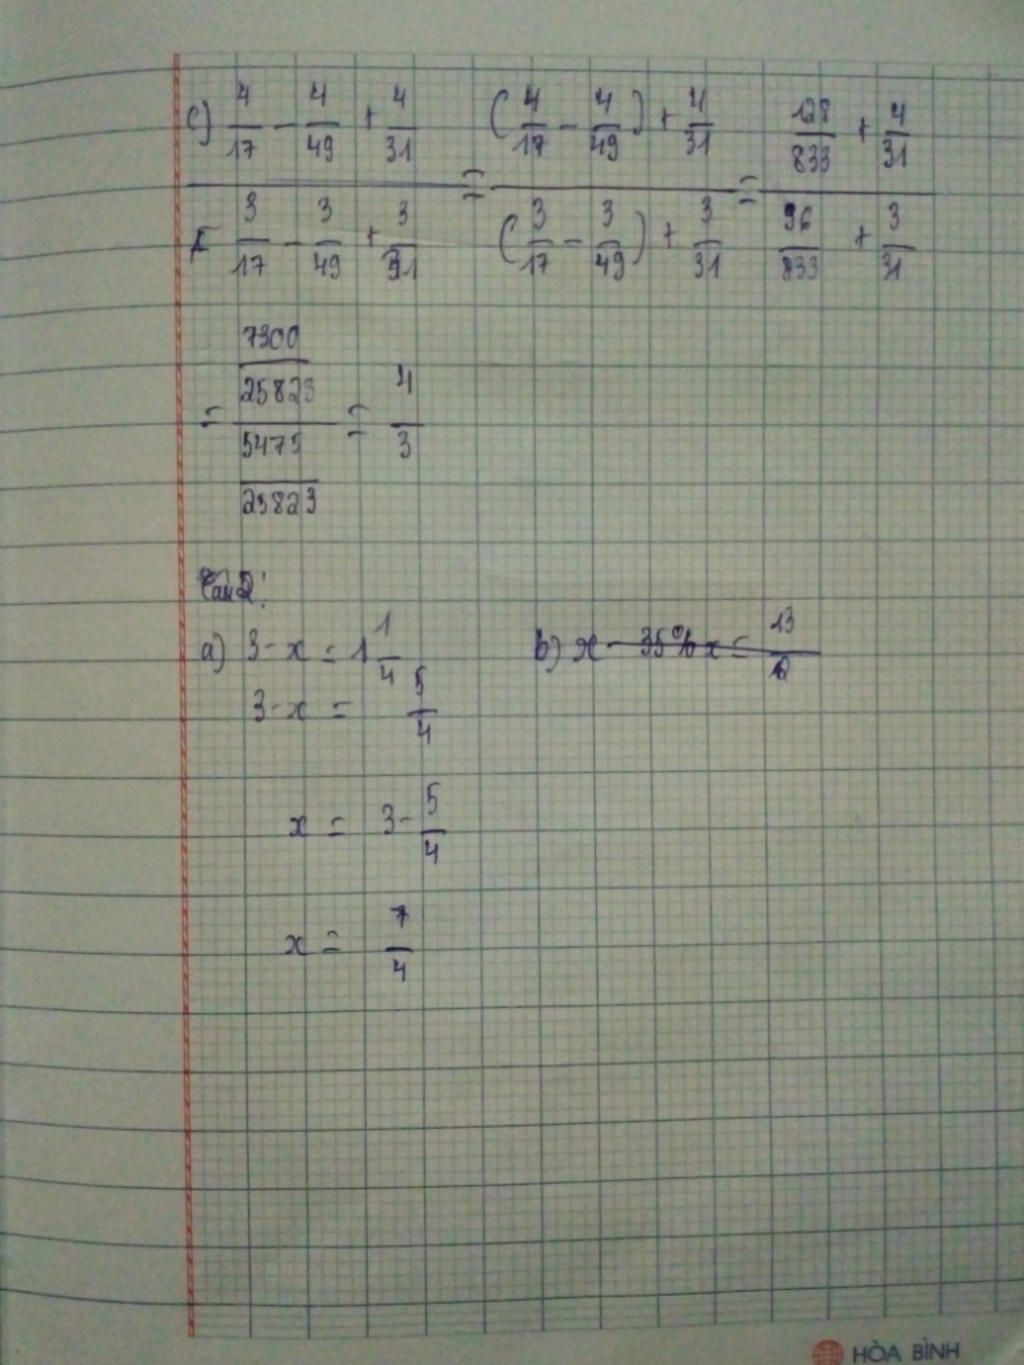 c) 4/17 - 4/49 + 4/31 / 3/17 - 3/49 + 3/31 = (4/17 - 4/49) + 4/31 / (3/17 - 3/49) + 3/31 = 128/833 + 4/31 / 96/833 + 3/31
= 7300/25823 / 5475/25823 = 4/3
a) 3 - x = 1 1/4 b) x - 35% x =
3 - x = 5/4
x = 3 - 5/4
x = 7/4
HÒA BÌNH